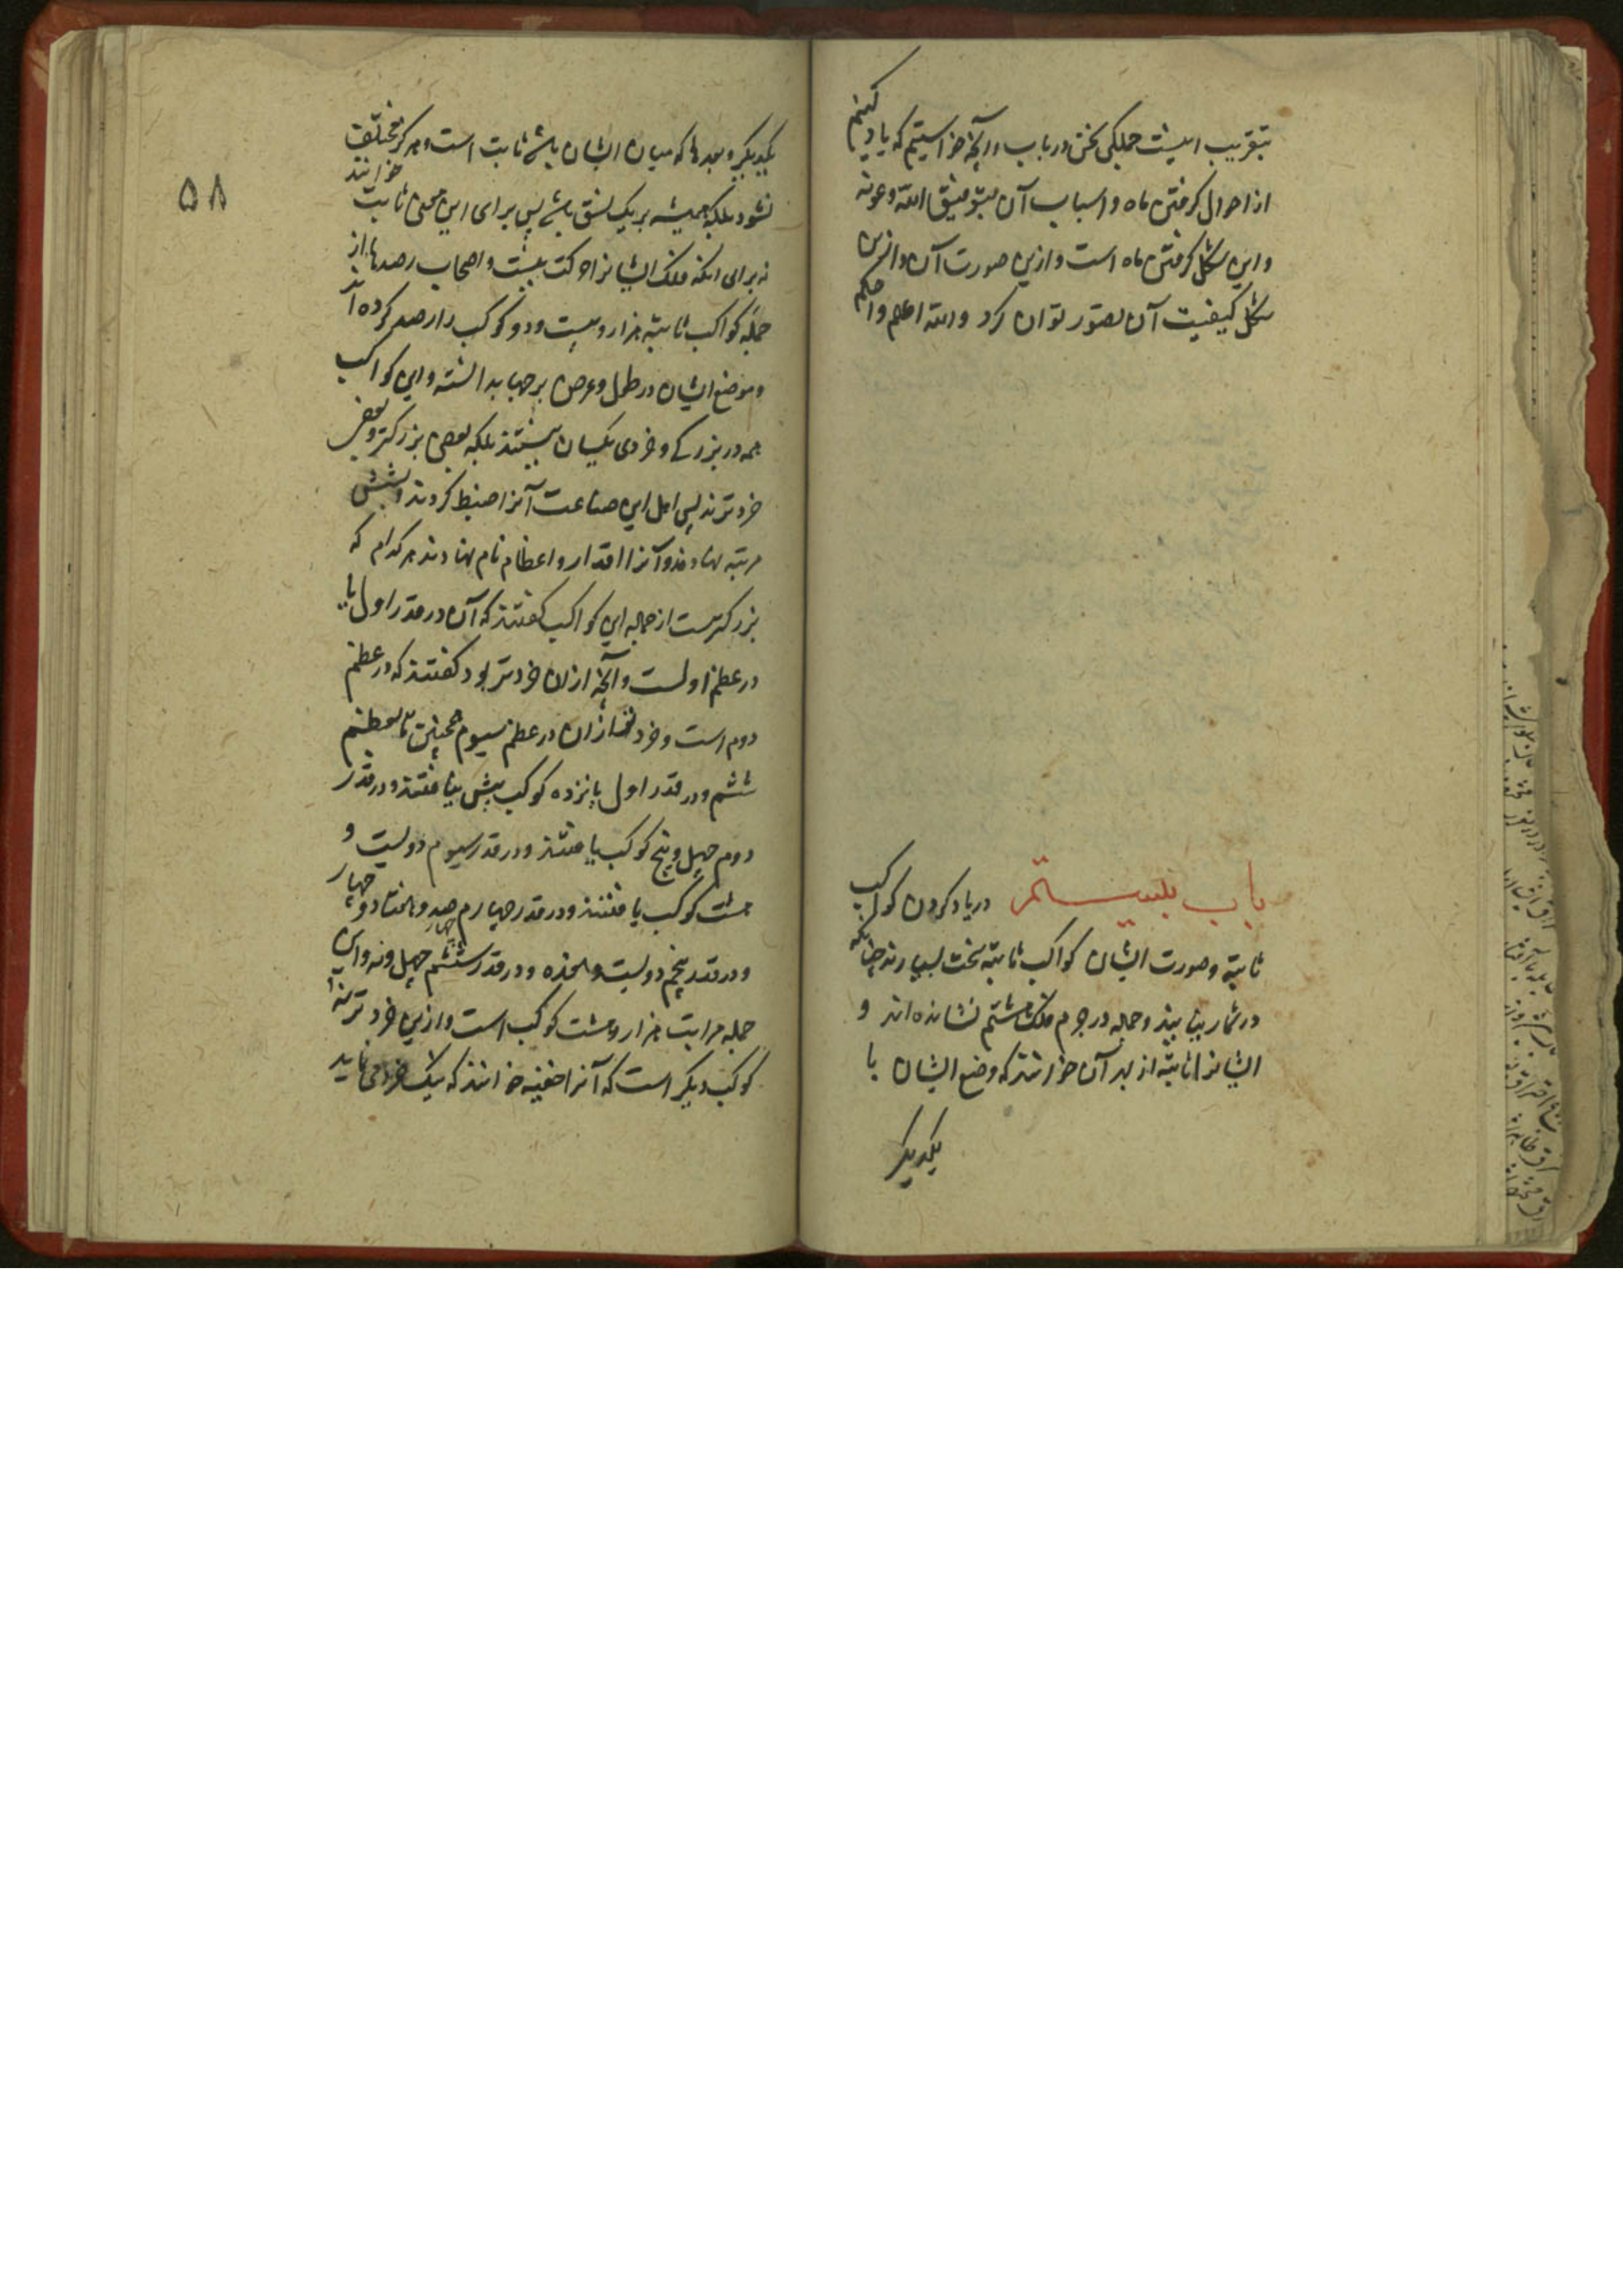 بتقریب اینست جملکی سخن در باب و آنچه خواستیم که یاد کنیم
از احوال کرفتن ماه و اسباب آن بتوفیق الله وعونه
و این شکل کرفتن ماه است و ازین صورت آن و ازین
شکل کیفیت آن تصور توان کرد والله اعلم واحکم
باب بیستم در یاد کردن کواکب
ثابته وصورت ایشان کواکب ثابته سخت بسیارند چنانکه
در شمار نیایند و جمله در جرم فلک هشتم نشانده اند و
ایشانرا ثابته از بهر آن خوانند که وضع ایشان با
یکدیکر
یکدیکر و بعدها که میان ایشان باشد ثابت است و هرکز مختلف
نشود بلکه همیشه بر یک نسق باشد پس برای این معنی ثابت خوانند
نه برای آنکه فلک ایشانرا حرکت نیست و اصحاب رصدها از
جمله کواکب ثابته هزار و بیست و دو کوکب را رصد کرده اند
و موضع ایشان در طول و عرض بدانسته و این کواکب
همه در بزرکی و خردی یکسان نیستند بلکه بعضی بزرکتر و بعضی
خردترند پس اهل این صناعت آنرا ضبط کردند و شش
مرتبه نهادند و آنرا اقدار و اعظام نام نهادند هر کدام که
بزرکترست از جمله این کواکب کفتند که آن در قدر اول یا
در عظم اولست و آنچه از ان خردتر بود کفتند که در عظم
دوم است و خردتر از ان در عظم سیوم همچنین تا بعظم
ششم و در قدر اول پانزده کوکب بیش نیافتند و در قدر
دوم چهل و پنج کوکب یافتند و در قدر سیوم دویست و
هشت کوکب یافتند و در قدر چهارم چهار صد و هفتاد و چهار
و در قدر پنجم دویست و هفده و در قدر ششم چهل و نه و این
جمله مراتب هزار و هشت کوکب است و ازین خردتر نه
کوکب دیکر است که آنرا خفیه خوانند که نیک خرد می نماید
۵۸